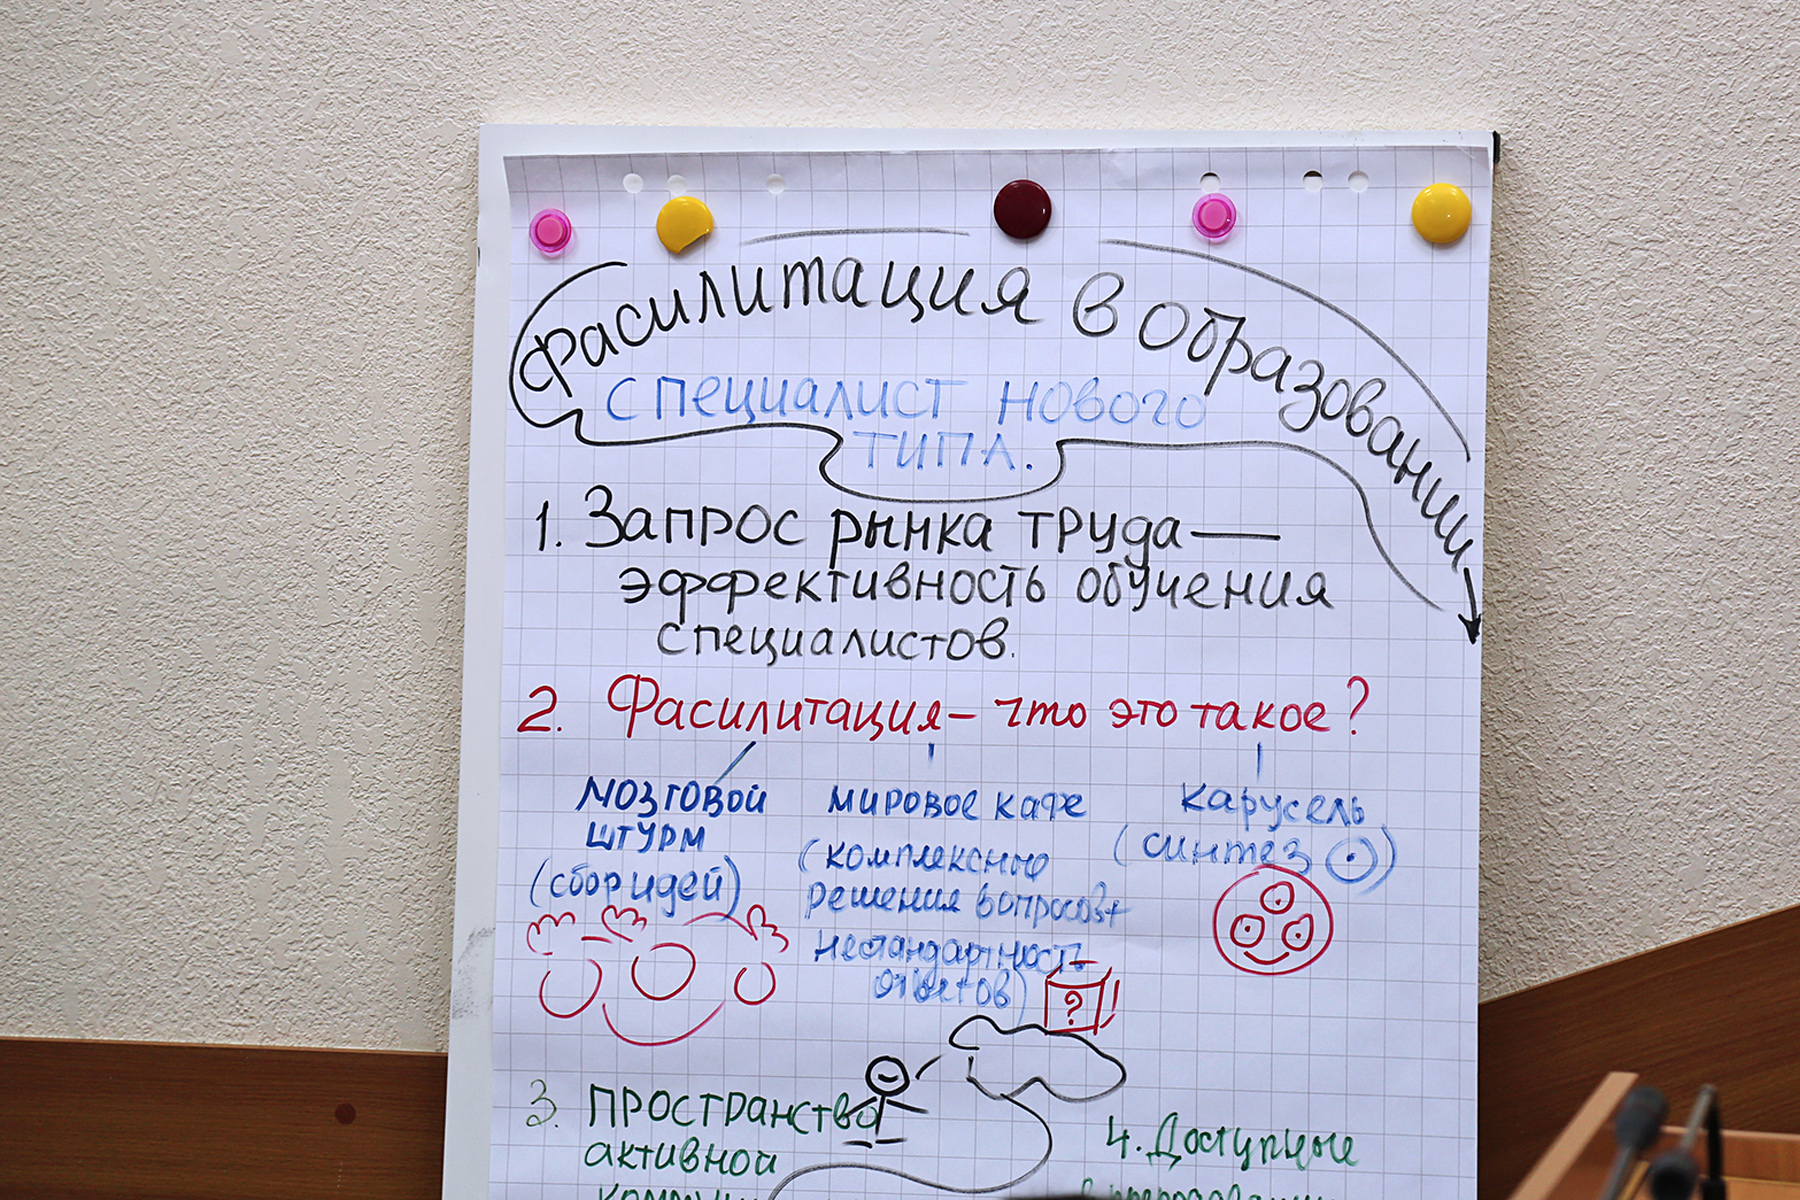 Фасилитация в образовании
специалист нового
типа.
1. Запрос рынка труда —
эффективность обучения
специалистов.
2. Фасилитация – что это такое?
мозговой
штурм
(сбор идей)
мировое кафе
(комплексные
решения вопросов+
нестандартность
ответов)
?
карусель
(синтез)
3. пространство
активной
4. Доступные